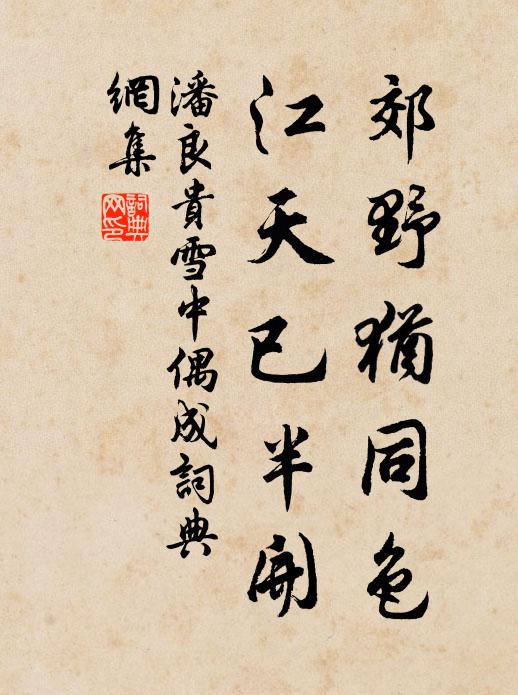 郊野猶同色
江天已半開
潘良貴雪中偶成詞典
網集
詞典
网印